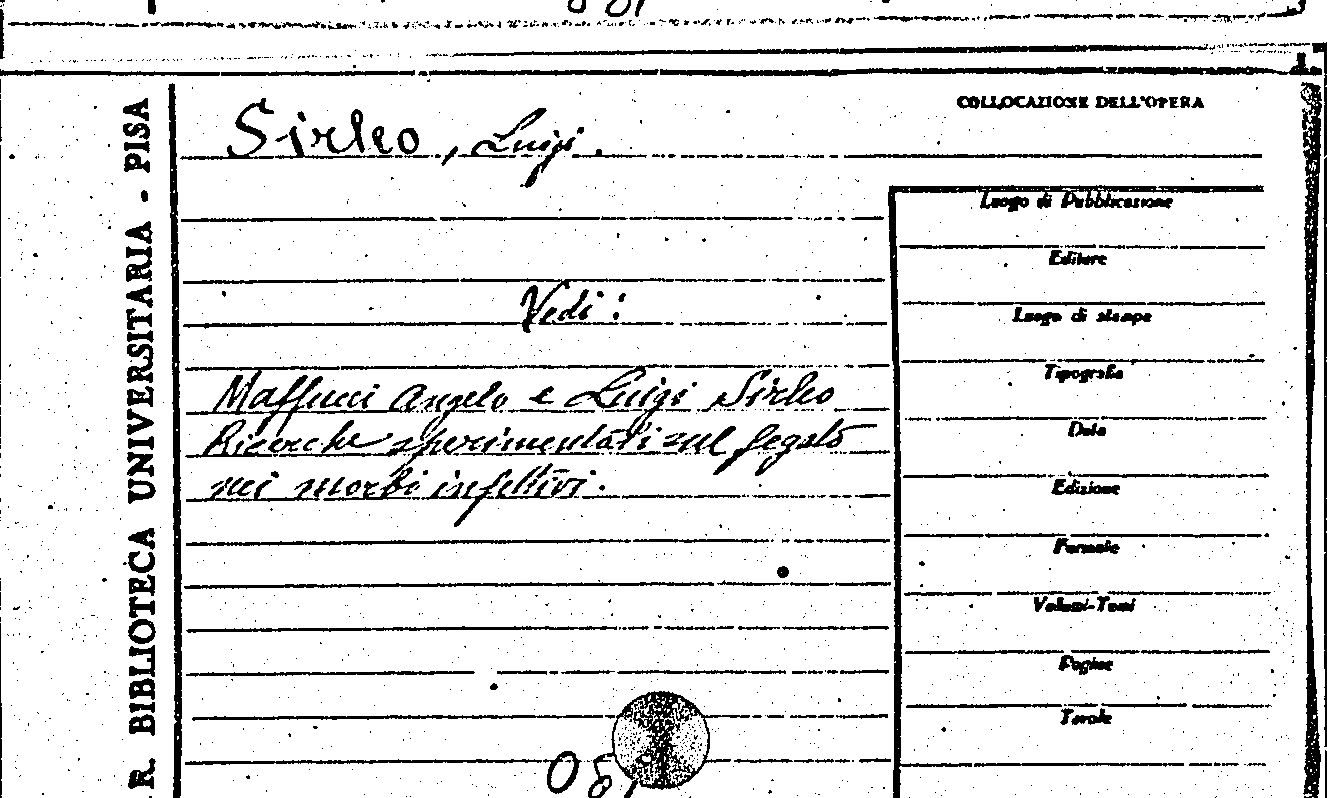 R. BIBLIOTECA UNIVERSITARIA - PISA
Sirleo, Luigi.
COLLOCAZIONE DELL'OPERA
Vedi:
Maffucci Angelo e Luigi Sirleo
Ricerche sperimentali sul fegato
nei morbi infettivi.
Luogo di Pubblicazione
Editore
Luogo di stampa
Tipografia
Data
Edizione
Formato
Volumi-Tomi
Pagine
Tavole